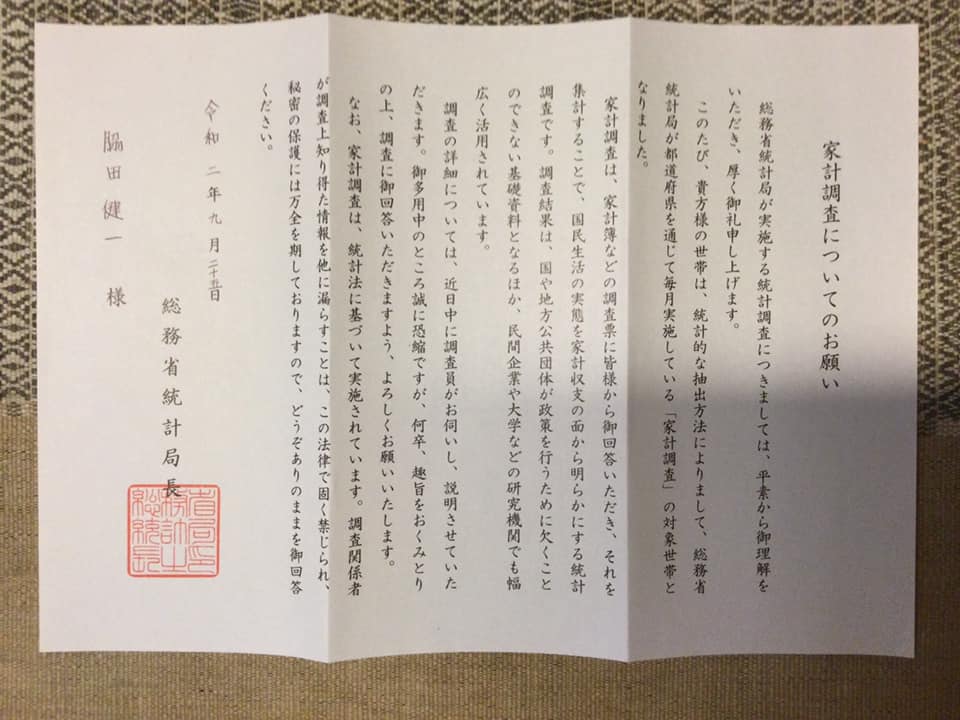 家計調査についてのお願い
総務省統計局が実施する統計調査につきましては、平素から御理解を
いただき、厚く御礼申し上げます。
このたび、貴方様の世帯は、統計的な抽出方法によりまして、総務省
統計局が都道府県を通じて毎月実施している「家計調査」の対象世帯と
なりました。
家計調査は、家計簿などの調査票に皆様から御回答いただき、それを
集計することで、国民生活の実態を家計収支の面から明らかにする統計
調査です。調査結果は、国や地方公共団体が政策を行うために欠くこと
のできない基礎資料となるほか、民間企業や大学などの研究機関でも幅
広く活用されています。
調査の詳細については、近日中に調査員がお伺いし、説明させていた
だきます。御多用中のところ誠に恐縮ですが、何卒、趣旨をおくみとり
の上、調査に御回答いただきますよう、よろしくお願いいたします。
なお、家計調査は、統計法に基づいて実施されています。調査関係者
が調査上知り得た情報を他に漏らすことは、この法律で固く禁じられ、
秘密の保護には万全を期しておりますので、どうぞありのままを御回答
ください。
令和二年九月二十五日
総務省統計局長
脇田健一様